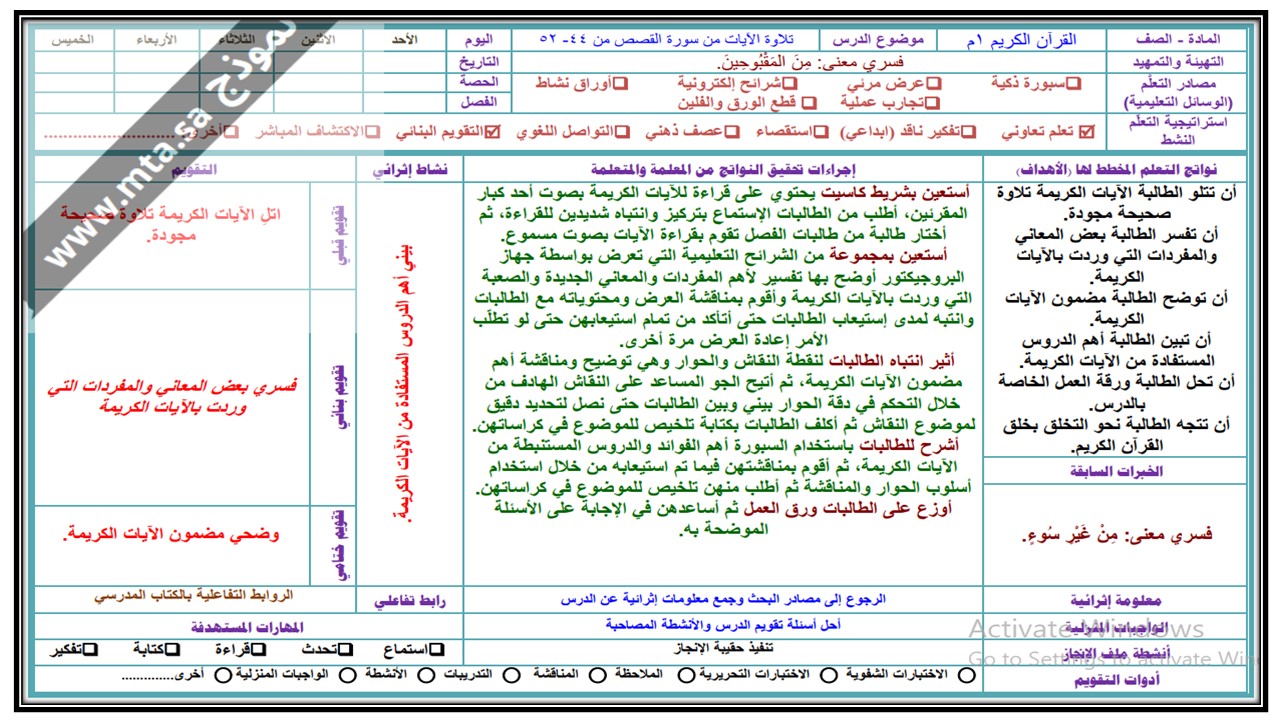 المادة - الصف
القرآن الكريم ١م
موضوع الدرس
تلاوة الآيات من سورة القصص من ٤٤- ٥٢
اليوم
الأحد
الاثنين
الثلاثاء
الأربعاء
الخميس
التهيئة والتمهيد
فسري معنى: مِنَ المَقْبُوحِينَ.
التاريخ
مصادر التعلّم
(الوسائل التعليمية)
سبورة ذكية
عرض مرئي
شرائح إلكترونية
أوراق نشاط
تجارب عملية
قطع الورق والفلين
الحصة
الفصل
استراتيجية التعلّم
النشط
تعلم تعاوني
تفكير ناقد (ابداعي)
استقصاء
عصف ذهني
التواصل اللغوي
التقويم البنائي
الاكتشاف المباشر
أخرى:............................
نواتج التعلم المخطط لها (الأهداف)
إجراءات تحقيق النواتج من المعلمة والمتعلمة
نشاط إثرائي
التقويم
أن تتلو الطالبة الآيات الكريمة تلاوة
صحيحة مجودة.
أن تفسر الطالبة بعض المعاني
والمفردات التي وردت بالآيات
الكريمة.
أن توضح الطالبة مضمون الآيات
الكريمة.
أن تبين الطالبة أهم الدروس
المستفادة من الآيات الكريمة.
أن تحل الطالبة ورقة العمل الخاصة
بالدرس.
أن تتجه الطالبة نحو التخلق بخلق
القرآن الكريم.
الخبرات السابقة
فسري معنى: مِنْ غَيْرِ سُوءٍ.
أستعين بشريط كاسيت يحتوي على قراءة للآيات الكريمة بصوت أحد كبار
المقرئين، أطلب من الطالبات الإستماع بتركيز وانتباه شديدين للقراءة، ثم
أختار طالبة من طالبات الفصل تقوم بقراءة الآيات بصوت مسموع.
أستعين بمجموعة من الشرائح التعليمية التي تعرض بواسطة جهاز
البروجيكتور أوضح بها تفسير لأهم المفردات والمعاني الجديدة والصعبة
التي وردت بالآيات الكريمة وأقوم بمناقشة العرض ومحتوياته مع الطالبات
وانتبه لمدى إستيعاب الطالبات حتى أتأكد من تمام استيعابهن حتى لو تطلّب
الأمر إعادة العرض مرة أخرى.
أثير انتباه الطالبات لنقطة النقاش والحوار وهي توضيح ومناقشة أهم
مضمون الآيات الكريمة، ثم أتيح الجو المساعد على النقاش الهادف من
خلال التحكم في دقة الحوار بيني وبين الطالبات حتى نصل لتحديد دقيق
لموضوع النقاش ثم أكلف الطالبات بكتابة تلخيص للموضوع في كراساتهن.
أشرح للطالبات باستخدام السبورة أهم الفوائد والدروس المستنبطة من
الآيات الكريمة، ثم أقوم بمناقشتهن فيما تم استيعابه من خلال استخدام
أسلوب الحوار والمناقشة ثم أطلب منهن تلخيص للموضوع في كراساتهن.
أوزع على الطالبات ورق العمل ثم أساعدهن في الإجابة على الأسئلة
الموضحة به.
بيني أهم الدروس المستفادة من الآيات الكريمة.
تقويم قبلي
اتلِ الآيات الكريمة تلاوة صحيحة
مجودة.
تقويم بنائي
فسري بعض المعاني والمفردات التي
وردت بالآيات الكريمة
تقويم ختامي
وضحي مضمون الآيات الكريمة.
معلومة إثرائية
الرجوع إلى مصادر البحث وجمع معلومات إثرائية عن الدرس
رابط تفاعلي
الروابط التفاعلية بالكتاب المدرسي
الواجبات المنزلية
أحل أسئلة تقويم الدرس والأنشطة المصاحبة
المهارات المستهدفة
أنشطة ملف الإنجاز
تنفيذ حقيبة الإنجاز
استماع
تحدث
قراءة
كتابة
تفكير
أدوات التقويم
الاختبارات الشفوية
الاختبارات التحريرية
الملاحظة
المناقشة
التدريبات
الأنشطة
الواجبات المنزلية
أخرى..............
نموذج www.mta.sa
Activate Windows
Go to Settings to activate Win